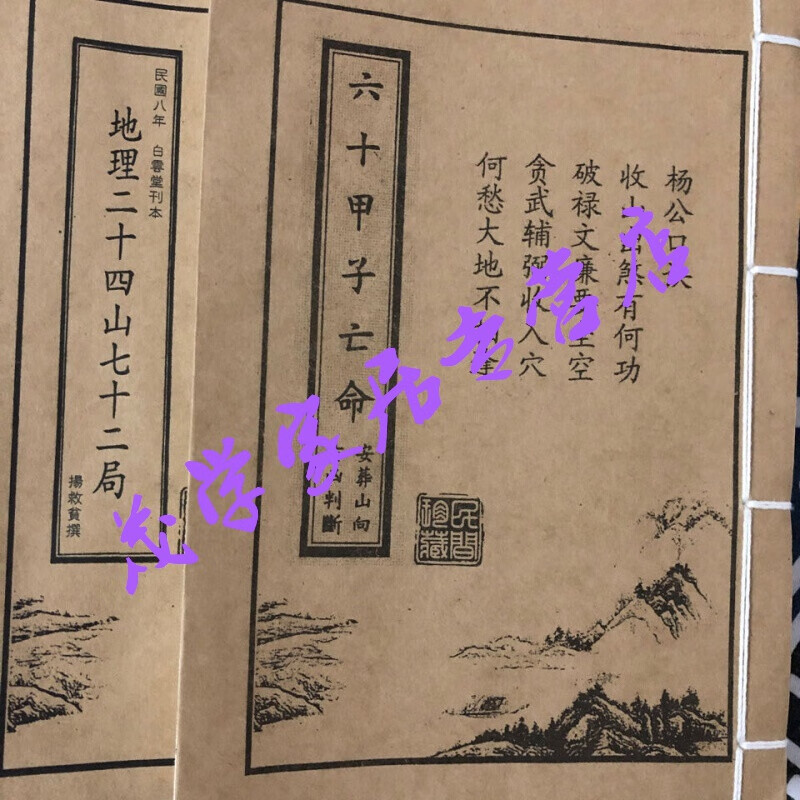 杨公口
收山出煞有何功
破禄文廉空
贪武辅弼收入穴
何愁大地不
六十甲子亡命
安葬山向
吉凶判斷
民間珍藏
民國八年 白雲堂刊本
地理二十四山七十二局
揚救貧撰
学居专营店